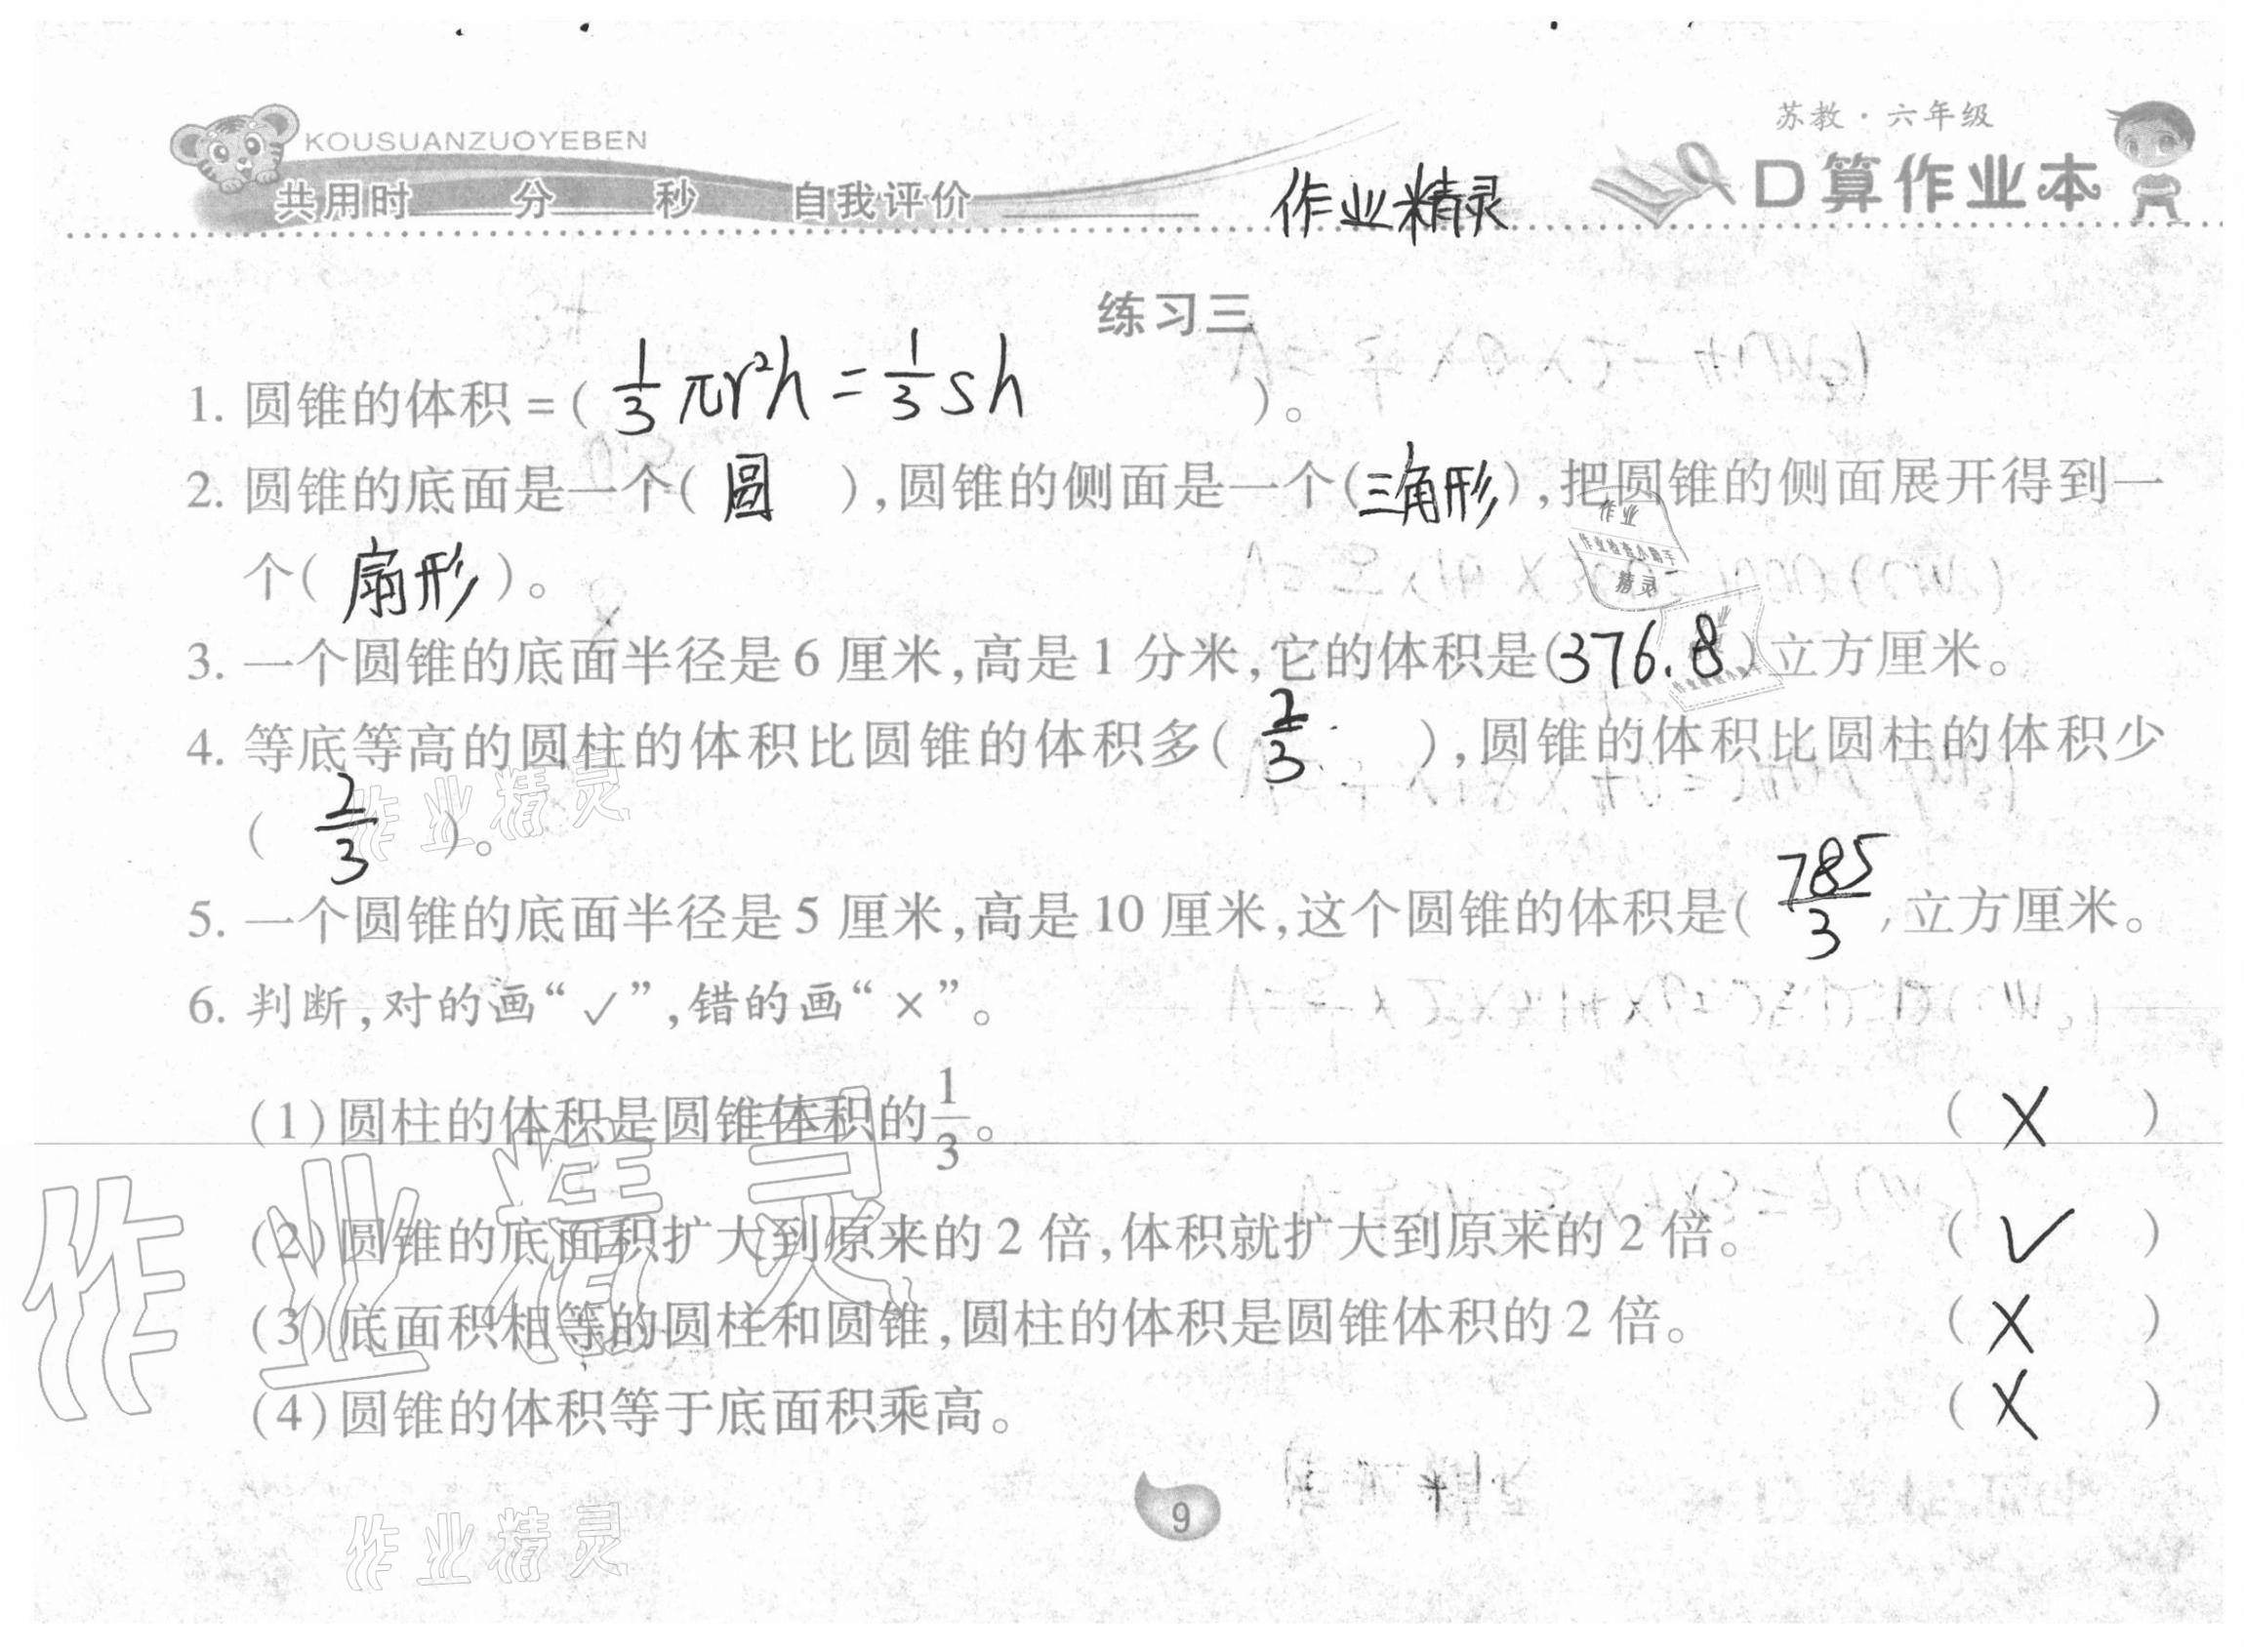 苏教·六年级
KOUSUANZUOYEBEN
共用时 分 秒 自我评价 作业精灵 口算作业本
练习三
1. 圆锥的体积=( 1/3 πr²h = 1/3 sh )。
2. 圆锥的底面是一个( 圆 ),圆锥的侧面是一个(三角形),把圆锥的侧面展开得到一
个( 扇形 )。
作业
作业检查小助手
精灵
3. 一个圆锥的底面半径是6厘米,高是1分米,它的体积是(376.8)立方厘米。
4. 等底等高的圆柱的体积比圆锥的体积多( 2/3 ),圆锥的体积比圆柱的体积少
( 2/3 )。
作业精灵
5. 一个圆锥的底面半径是5厘米,高是10厘米,这个圆锥的体积是( 785/3 )立方厘米。
6. 判断,对的画“✓”,错的画“×”。
(1)圆柱的体积是圆锥体积的1/3。 ( × )
作业精灵
(2)圆锥的底面积扩大到原来的2倍,体积就扩大到原来的2倍。 ( ✓ )
(3)底面积相等的圆柱和圆锥,圆柱的体积是圆锥体积的2倍。 ( × )
(4)圆锥的体积等于底面积乘高。 ( × )
9
作业精灵